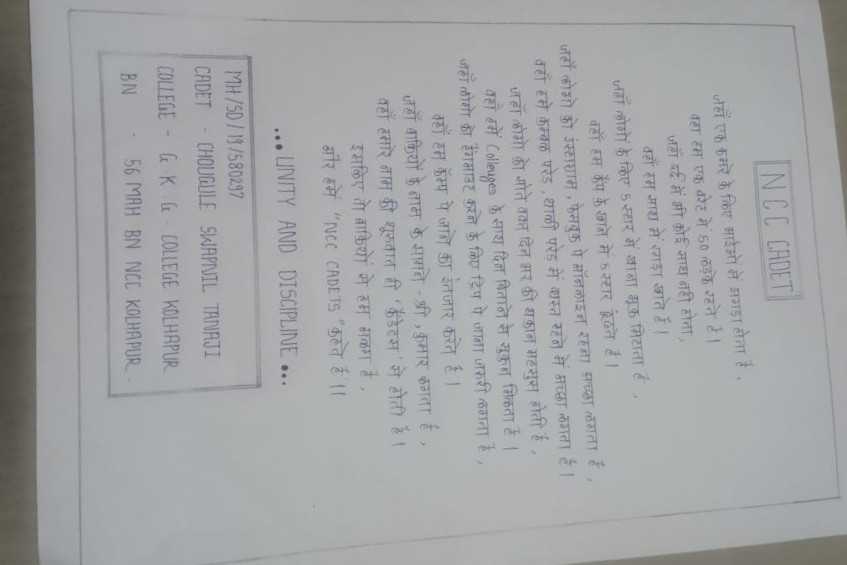 NCC CADET
जहाँ एक कमरे के लिए भाईओ से झगडा होता है,
वहा हम एक बॅरेट मे 50 लडके रहते है।
जहाँ दर्द में भी कोई साथ नही होता,
वहाँ हम साथ में रगडा खाते है।
जहाँ लोगो के लिए 5 स्टार में खाना भूक मिटाता है,
वहाँ हम कॅंप के खाने में 5 स्टार ढूंढते है।
जहाँ लोगो को इंस्टाग्राम, फेसबुक पे ऑनलाइन रहना अच्छा लगता है,
वहाँ हमे कम्बल परेड, थाली परेड में व्यस्त रहने में अच्छा लगता है।
जहाँ लोगो को सोते वक्त दिन भर की थकान महसूस होती है,
वही हमे Colleuges के साथ दिन बिताने से सुकून मिलता है।
जहाँ लोगो को हँगआउट करने के लिए ट्रिप पे जाना जरुरी लगता है,
वहाँ हम कॅम्प पे जाने का इंतजार करते है।
जहाँ बाकियों के नाम के सामने श्री, कुमार लगता है,
वहाँ हमारे नाम की शुरुवात ही 'कॅडेटस' से होती है।
इसलिए तो बाकियों से हम अलग है,
और हमें "NCC CADETS" कहते है।।
... UNITY AND DISCIPLINE ...
MH/SD/19/580297
CADET - CHOUGULE SWAPNIL TANAJI
COLLEGE - G. K. G. COLLEGE KOLHAPUR
BN - 56 MAH BN NCC KOLHAPUR.